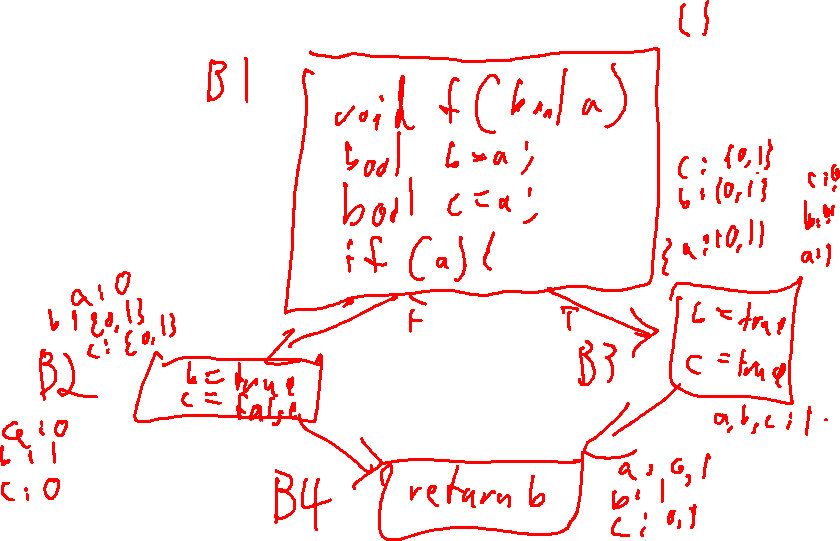 {}
B1
void f(bool a)
bool b=a;
bool c=a;
if (a) {
c: {0,1}
b: {0,1}
{ a: {0,1}
a:1
F
T
a:0
b: {0,1}
c: {0,1}
B2
b = true
c = false
B3
c = true
c = true
a,b,c:1
a:0
b:1
c:0
B4
return b
a: 0,1
b: 1
c: 0,1